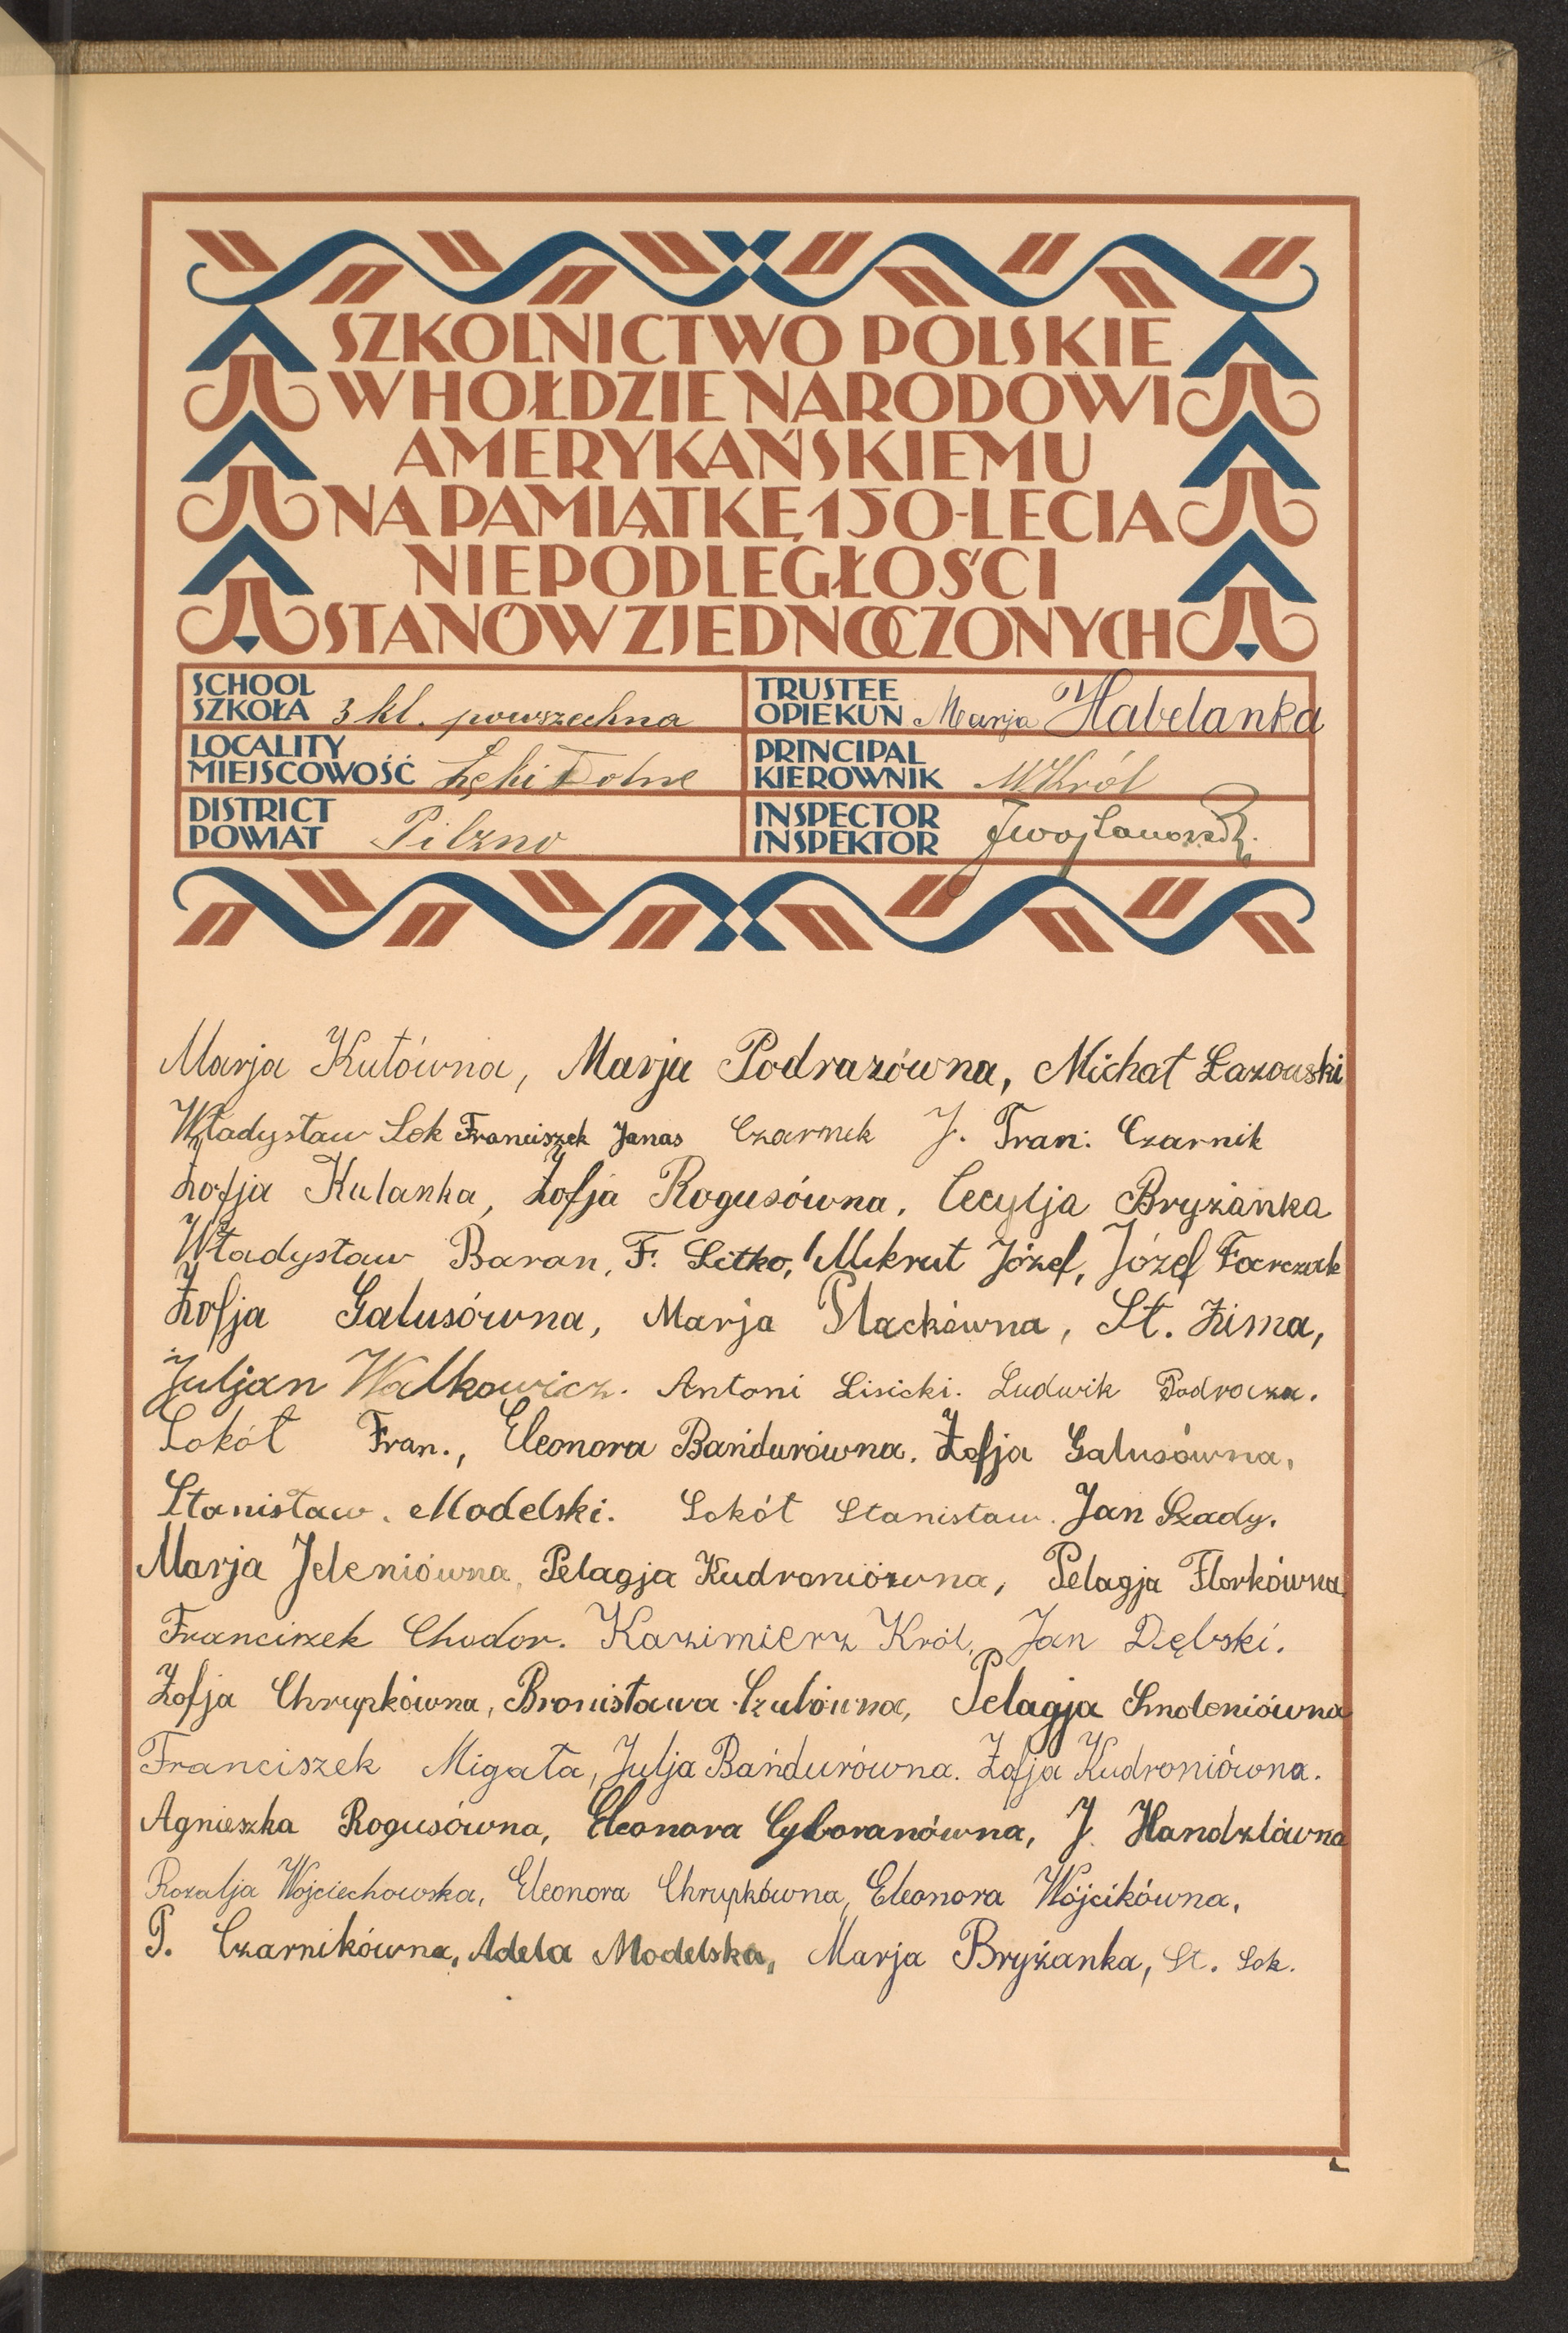 SZKOLNICTWO POLSKIE
W HOŁDZIE NARODOWI
AMERYKAŃSKIEMU
NA PAMIĄTKĘ 150-LECIA
NIEPODLEGŁOŚCI
STANÓW ZJEDNOCZONYCH
SCHOOL
SZKOŁA 3 kl. powszechna
TRUSTEE
OPIEKUN Marja Habelanka
LOCALITY
MIEJSCOWOŚĆ Łęki Dolne
PRINCIPAL
KIEROWNIK WKról
DISTRICT
POWIAT Pilzno
INSPECTOR
INSPEKTOR
Marja Kutówna, Marja Podrazówna, Michał Łazowski
Władysław Sok Franciszek Janas Czarnik J. Fran: Czarnik
Zofja Kulanka, Zofja Rogusówna, Cecylja Bryżanka
Władysław Baran, F. Litko, Mikrut Józef, Józef
Zofja Galusówna, Marja Plackówna, St. Zima,
Juljan Walkowicz. Antoni Lisicki. Ludwik Podraza.
Sokół Fran., Eleonora Bańdurówna. Zofja Galusówna,
Stanisław. Modelski. Sokół Stanisław. Jan Szady.
Marja Jeleniówna, Pelagja Kudroniówna, Pelagja Florkówna
Franciszek Chodor. Kazimierz Król, Jan Dębski.
Zofja Chrupkówna, Bronisława Czubówna, Pelagja Smoleniówna
Franciszek Migała, Julja Bańdurówna. Zofja Kudroniówna.
Agnieszka Rogusówna, Eleonora Cyboranówna, J. Handzlówna
Rozalja Wojciechowska, Eleonora Chrupkówna, Eleonora Wójcikówna,
P. Czarnikówna, Adela Modelska, Marja Bryżanka, St. Sok.